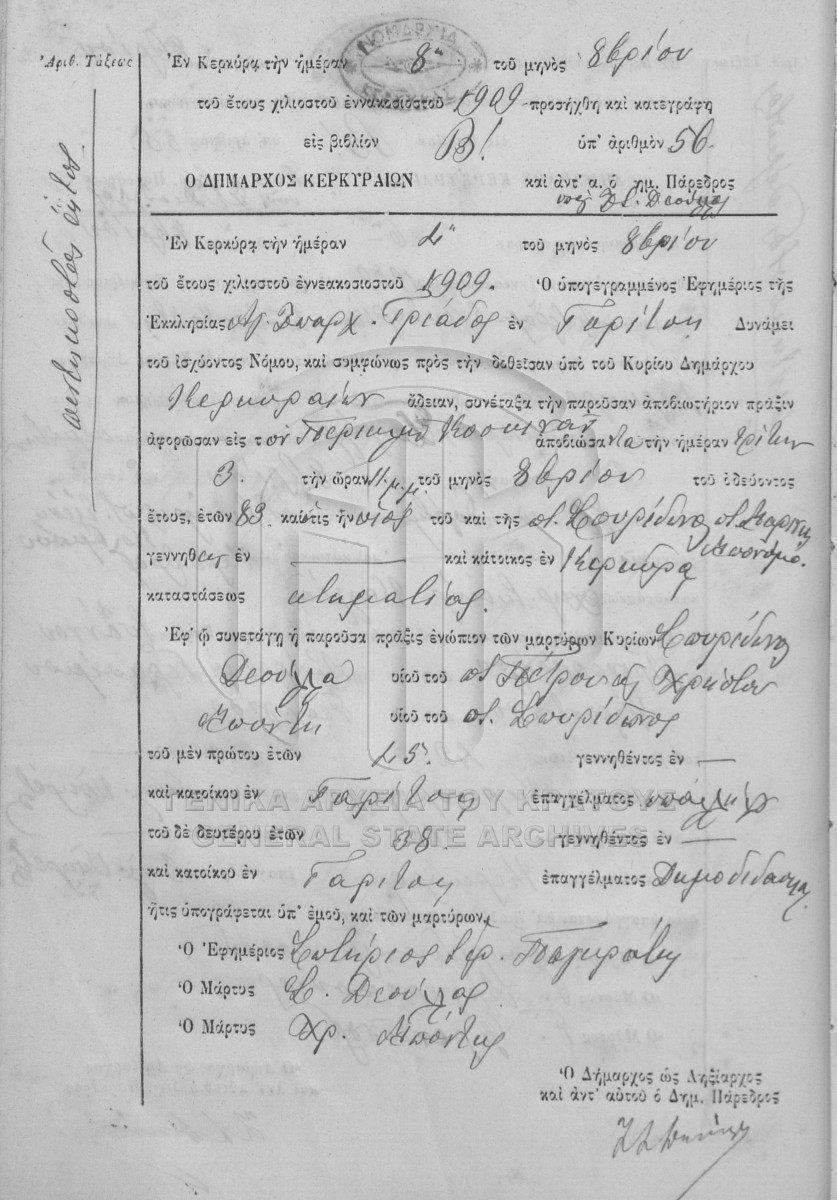 ΝΟΜΑΡΧΙΑ
ΚΕΡΚΥΡΑΣ
Ἀριθ. Τάξεως
πεντηκοστὸς ἕκτος
Ἐν Κερκύρᾳ τὴν ἡμέραν 8η τοῦ μηνὸς 8βρίου
τοῦ ἔτους χιλιοστοῦ ἐννακοσιοστοῦ 1909 προσήχθη καὶ κατεγράφη
εἰς βιβλίον Β! ὑπ' ἀριθμὸν 56
Ο ΔΗΜΑΡΧΟΣ ΚΕΡΚΥΡΑΙΩΝ καὶ ἀντ' α. ὁ δημ. Πάρεδρος
Ἐν Κερκύρᾳ τὴν ἡμέραν 4η τοῦ μηνὸς 8βρίου
τοῦ ἔτους χιλιοστοῦ ἐννεακοσιοστοῦ 1909. Ὁ ὑπογεγραμμένος Ἐφημέριος τῆς
Ἐκκλησίας Ἁγ. Ζωαρχ. Τριάδος ἐν Γαρίτσῃ Δυνάμει
τοῦ ἰσχύοντος Νόμου, καὶ συμφώνως πρὸς τὴν δοθεῖσαν ὑπὸ τοῦ Κυρίου Δημάρχου
Κερκυραίων ἄδειαν, συνέταξα τὴν παροῦσαν ἀποβιωτήριον πρᾶξιν
ἀφορῶσαν εἰς τὸν ἀποβιώσαντα τὴν ἡμέραν τρίτην
3. τὴν ὥραν 11 μ.μ. τοῦ μηνὸς 8βρίου τοῦ ὁδεύοντος
ἔτους, ἐτῶν 83 καὶ τις ἦν υἱὸς τοῦ καὶ τῆς π. Σπυρίδωνος
γεννηθεις ἐν — καὶ κάτοικος ἐν Κερκύρᾳ
καταστάσεως κτηματίας.
Ἐφ' ᾧ συνετάγη ἡ παροῦσα πρᾶξις ἐνώπιον τῶν μαρτύρων Κυρίων Σπυρίδωνος
Δεσύλλα υἱοῦ τοῦ π. Πέτρου καὶ Χρήστου
Μπόντη υἱοῦ τοῦ π. Σπυρίδωνος
τοῦ μὲν πρώτου ἐτῶν 45. γεννηθέντος ἐν —
καὶ κατοίκου ἐν Γαρίτσῃ ἐπαγγέλματος ὑπαλλήλου
τοῦ δὲ δευτέρου ἐτῶν 38 γεννηθέντος ἐν —
καὶ κατοίκου ἐν Γαρίτσῃ ἐπαγγέλματος Δημοδιδασκ.
ἥτις ὑπογράφεται ὑπ' ἐμοῦ, καὶ τῶν μαρτύρων.
Ὁ Ἐφημέριος Σωτήριος
Ὁ Μάρτυς Σ. Δεσύλλας
Ὁ Μάρτυς Χρ. Μπόντης
Ὁ Δήμαρχος ὡς Ληξίαρχος
καὶ ἀντ' αὐτοῦ ὁ Δημ. Πάρεδρος
ΓΕΝΙΚΑ ΑΡΧΕΙΑ ΤΟΥ ΚΡΑΤΟΥΣ
GENERAL STATE ARCHIVES